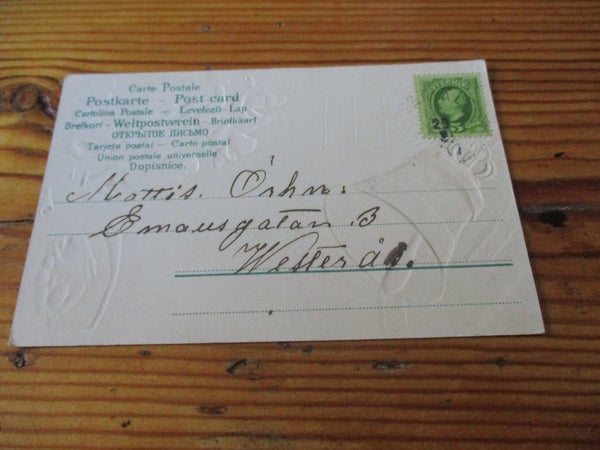 Carte Postale
Postkarte – Post card
Cartolina Postale – Levelező-Lap
Brefkort – Weltpostverein – Briefkaart
ОТКРЫТОЕ ПИСЬМО
Tarjeta postal – Carto postal
Union postale universelle
Dopisnice.
SVERIGE
23
Mattis. Örhn:
Emausgatan 3
Westerås.